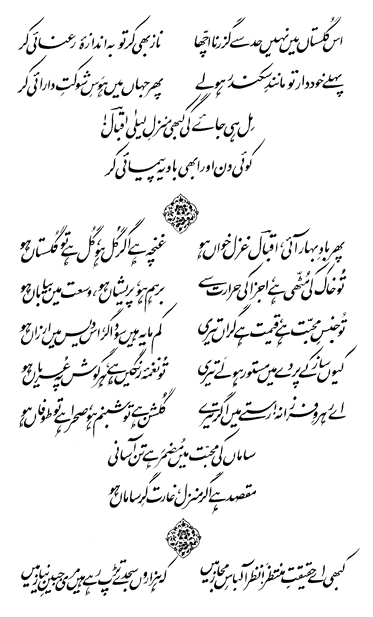 اس گلستاں میں نہیں حد سے گزرنا اچھا ناز بھی کر تو بہ اندازۂ رعنائی کر
پہلے خوددار تو مانندِ سکندر ہو لے پھر جہاں میں ہوسِ شوکتِ دارائی کر
مل ہی جائے گی کبھی منزلِ لیلیٰ اقبالؔ!
کوئی دن اور ابھی بادیہ پیمائی کر
پھر بادِ بہار آئی، اقبالؔ غزل خواں ہو غنچہ ہے اگر گل ہو، گل ہے تو گلستاں ہو
تو خاک کی مٹھی ہے، اجزا کی حرارت سے برہم ہو، پریشاں ہو، وسعت میں بیاباں ہو
تو جنسِ محبت ہے، قیمت ہے گراں تیری کم مایہ ہیں سوداگر، اس دیس میں ارزاں ہو
کیوں ساز کے پردے میں مستور ہو لے تیری تو نغمۂ رنگیں ہے، ہر گوش پہ عریاں ہو
اے رہروِ فرزانہ! رستے میں اگر تیرے گلشن ہے تو شبنم ہو، صحرا ہے تو طوفاں ہو
ساماں کی محبت میں مضمر ہے تن آسانی
مقصد ہے اگر منزل، غارت گرِ ساماں ہو
کبھی اے حقیقتِ منتظر! نظر آ لباسِ مجاز میں کہ ہزاروں سجدے تڑپ رہے ہیں مری جبینِ نیاز میں